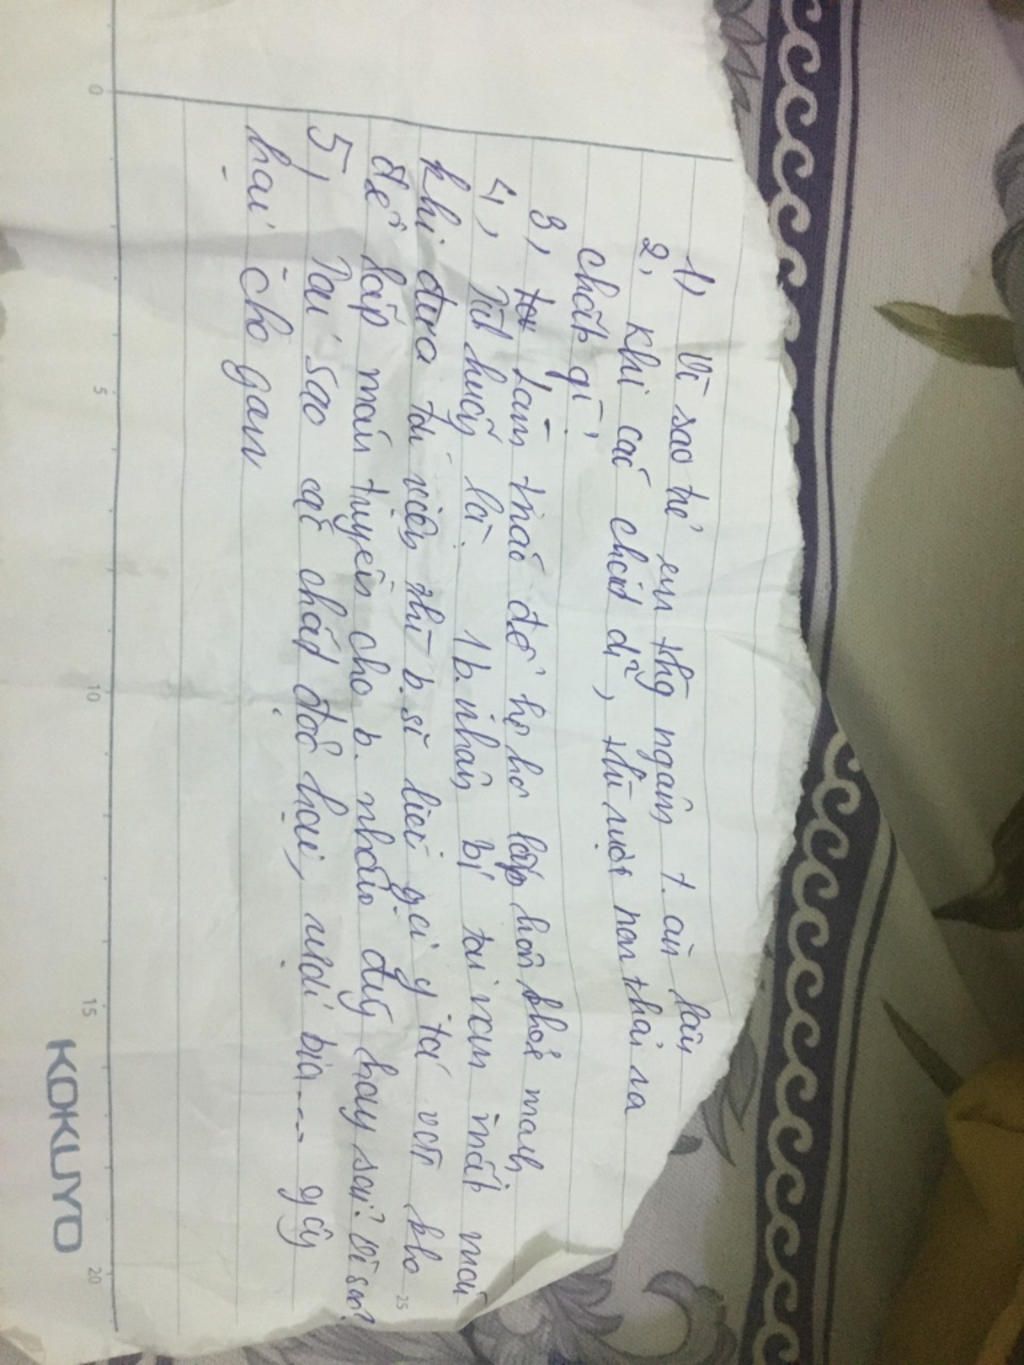 1, Vì sao trẻ em thg ngậm t. ăn lâu
2, Khi các chất dd, thì ruột non thải ra
chất gì?
3, Làm thế nào để hệ hô hấp luôn khoẻ mạnh
4, Tình huống là: 1 b. nhân bị tai nạn mất máu
khi đưa tới viện thì b. sĩ liền gọi y tá vào kho
để lấp máu truyền cho b. nhân đúng hay sai? Vì sao?
5, Tại sao các chất độc hại, rượu bia... gây
hại cho gan
KOKUYO
0
5
10
15
20
25